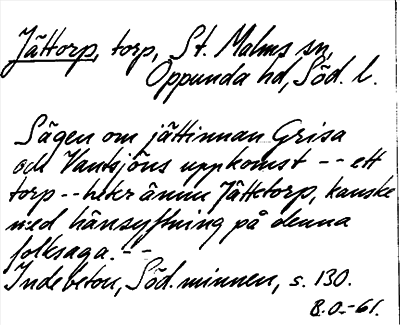 Jättorp, torp, St. Malms sn,
Oppunda hd, Söd. l.
Sägen om jättinnan Grisa
och Vansjöns uppkomst -- ett
torp -- heter ännu Jättetorp, kanske
med hänsyftning på denna
folksaga. --
Indebetou, Söd. minnen, s. 130.
B.O.-61.